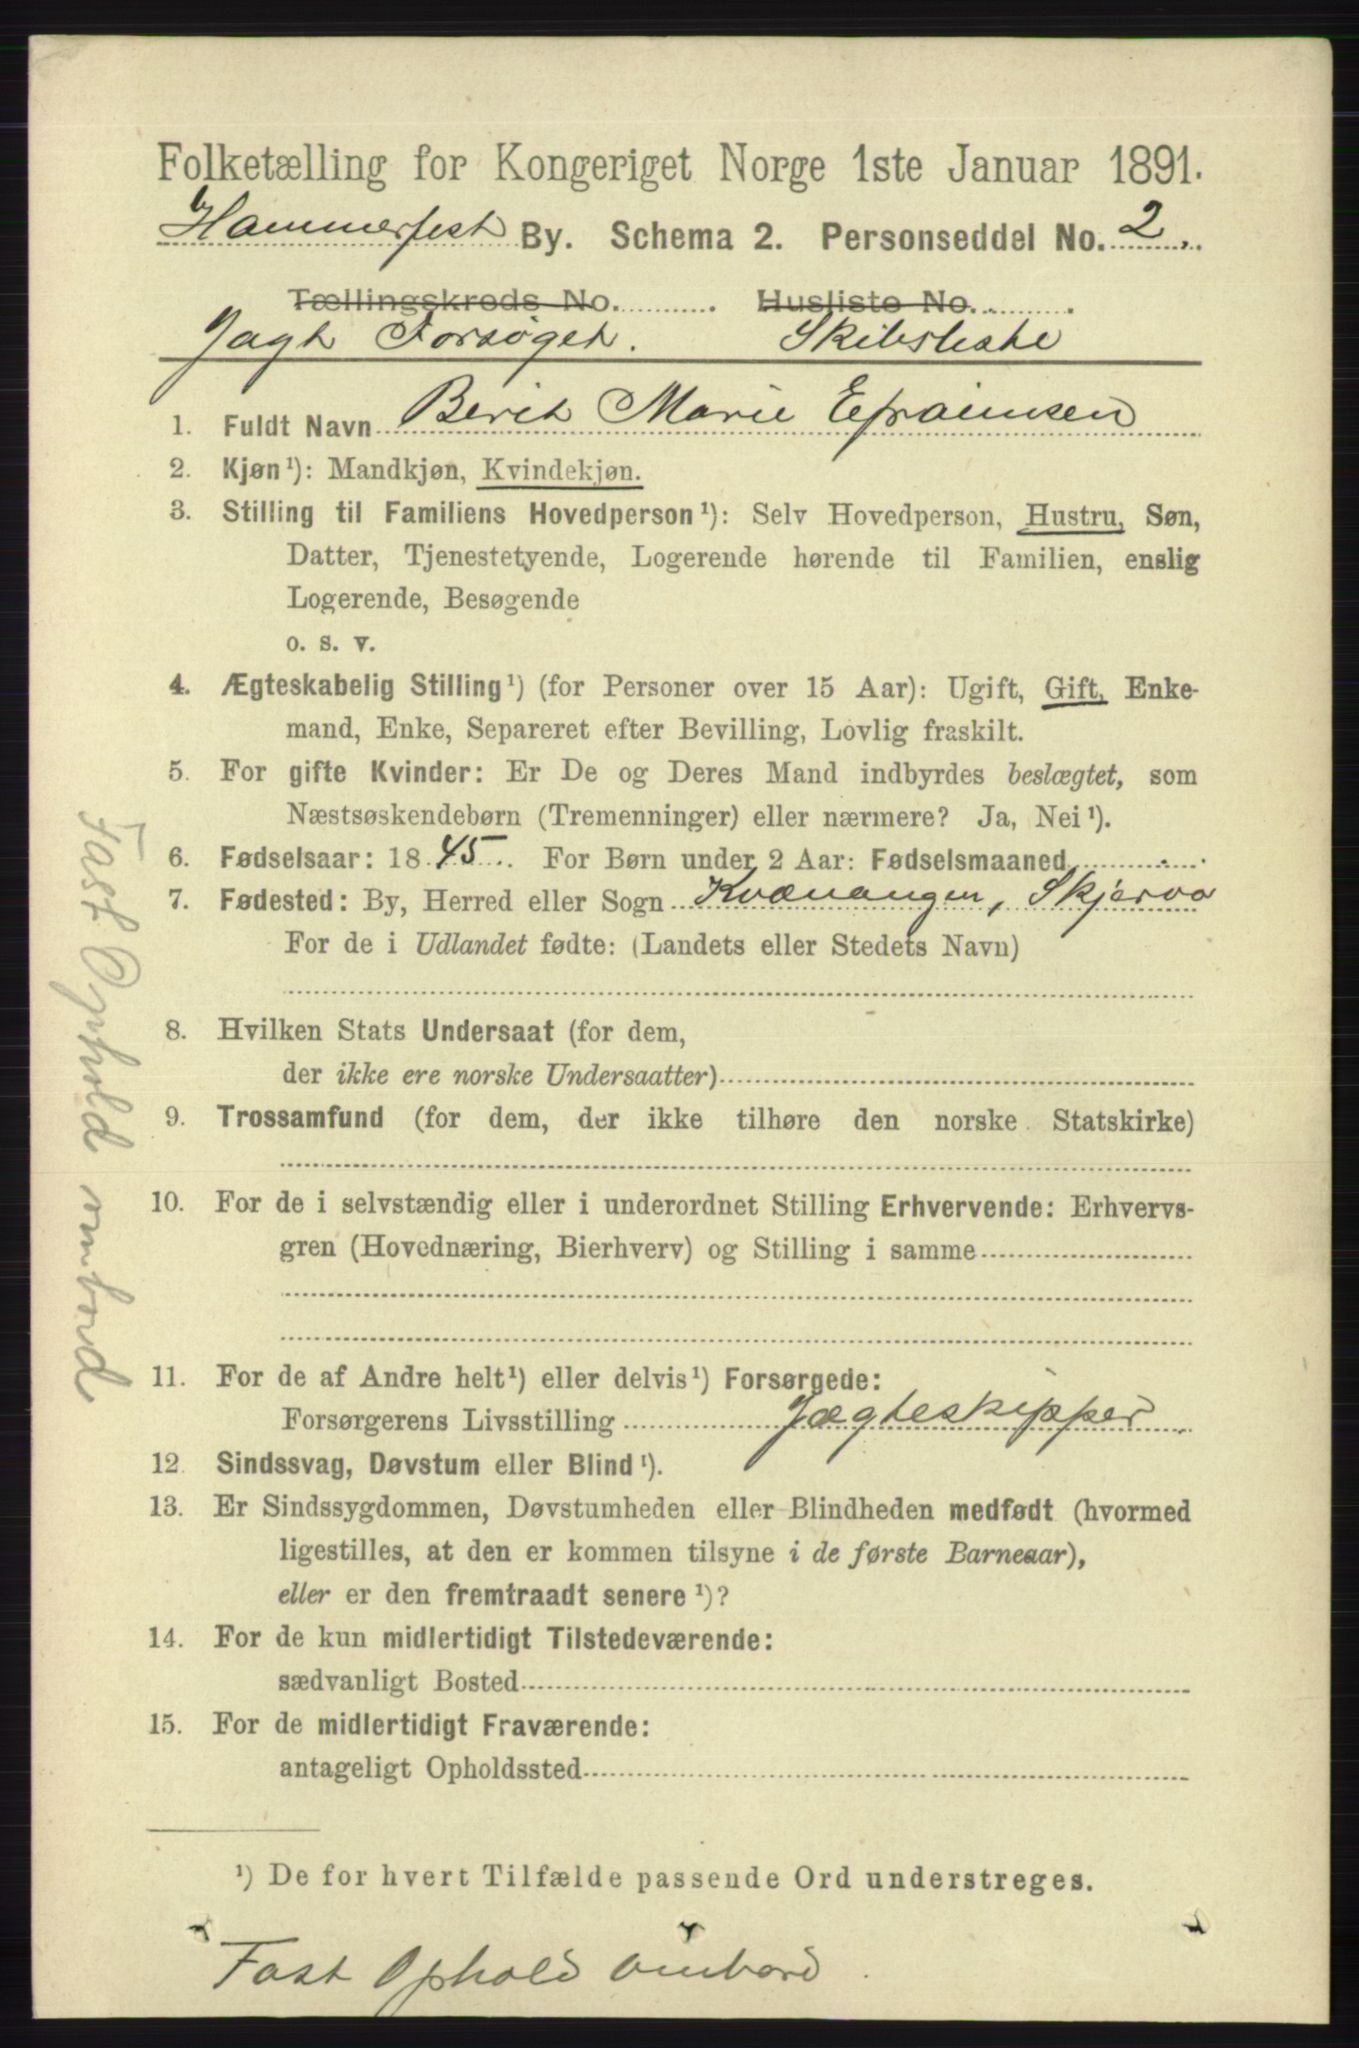 Folketælling for Kongeriget Norge 1ste Januar 1891.
Hammerfest By. Schema 2. Personseddel No. 2.
Tællingskreds No. Husliste No.
Jagt Forsøget. Skibsliste
1. Fuldt Navn Berit Marie Efraimsen
2. Kjøn¹): Mandkjøn, Kvindekjøn.
3. Stilling til Familiens Hovedperson¹): Selv Hovedperson, Hustru, Søn,
Datter, Tjenestetyende, Logerende hørende til Familien, enslig
Logerende, Besøgende
o. s. v.
4. Ægteskabelig Stilling¹) (for Personer over 15 Aar): Ugift, Gift, Enke-
mand, Enke, Separeret efter Bevilling, Lovlig fraskilt.
5. For gifte Kvinder: Er De og Deres Mand indbyrdes beslægtet, som
Næstsøskendebørn (Tremenninger) eller nærmere? Ja, Nei¹).
6. Fødselsaar: 1845. For Børn under 2 Aar: Fødselsmaaned
7. Fødested: By, Herred eller Sogn Kvænangen, Skjervø
For de i Udlandet fødte: (Landets eller Stedets Navn)
8. Hvilken Stats Undersaat (for dem,
der ikke ere norske Undersaatter)
9. Trossamfund (for dem, der ikke tilhøre den norske Statskirke)
10. For de i selvstændig eller i underordnet Stilling Erhvervende: Erhvervs-
gren (Hovednæring, Bierhverv) og Stilling i samme
11. For de af Andre helt¹) eller delvis¹) Forsørgede:
Forsørgerens Livsstilling Jægteskipper
12. Sindssvag, Døvstum eller Blind¹).
13. Er Sindssygdommen, Døvstumheden eller Blindheden medfødt (hvormed
ligestilles, at den er kommen tilsyne i de første Barneaar),
eller er den fremtraadt senere¹)?
14. For de kun midlertidigt Tilstedeværende:
sædvanligt Bosted
15. For de midlertidigt Fraværende:
antageligt Opholdssted
¹) De for hvert Tilfælde passende Ord understreges.
Fast Ophold ombord.
Fast Ophold ombord